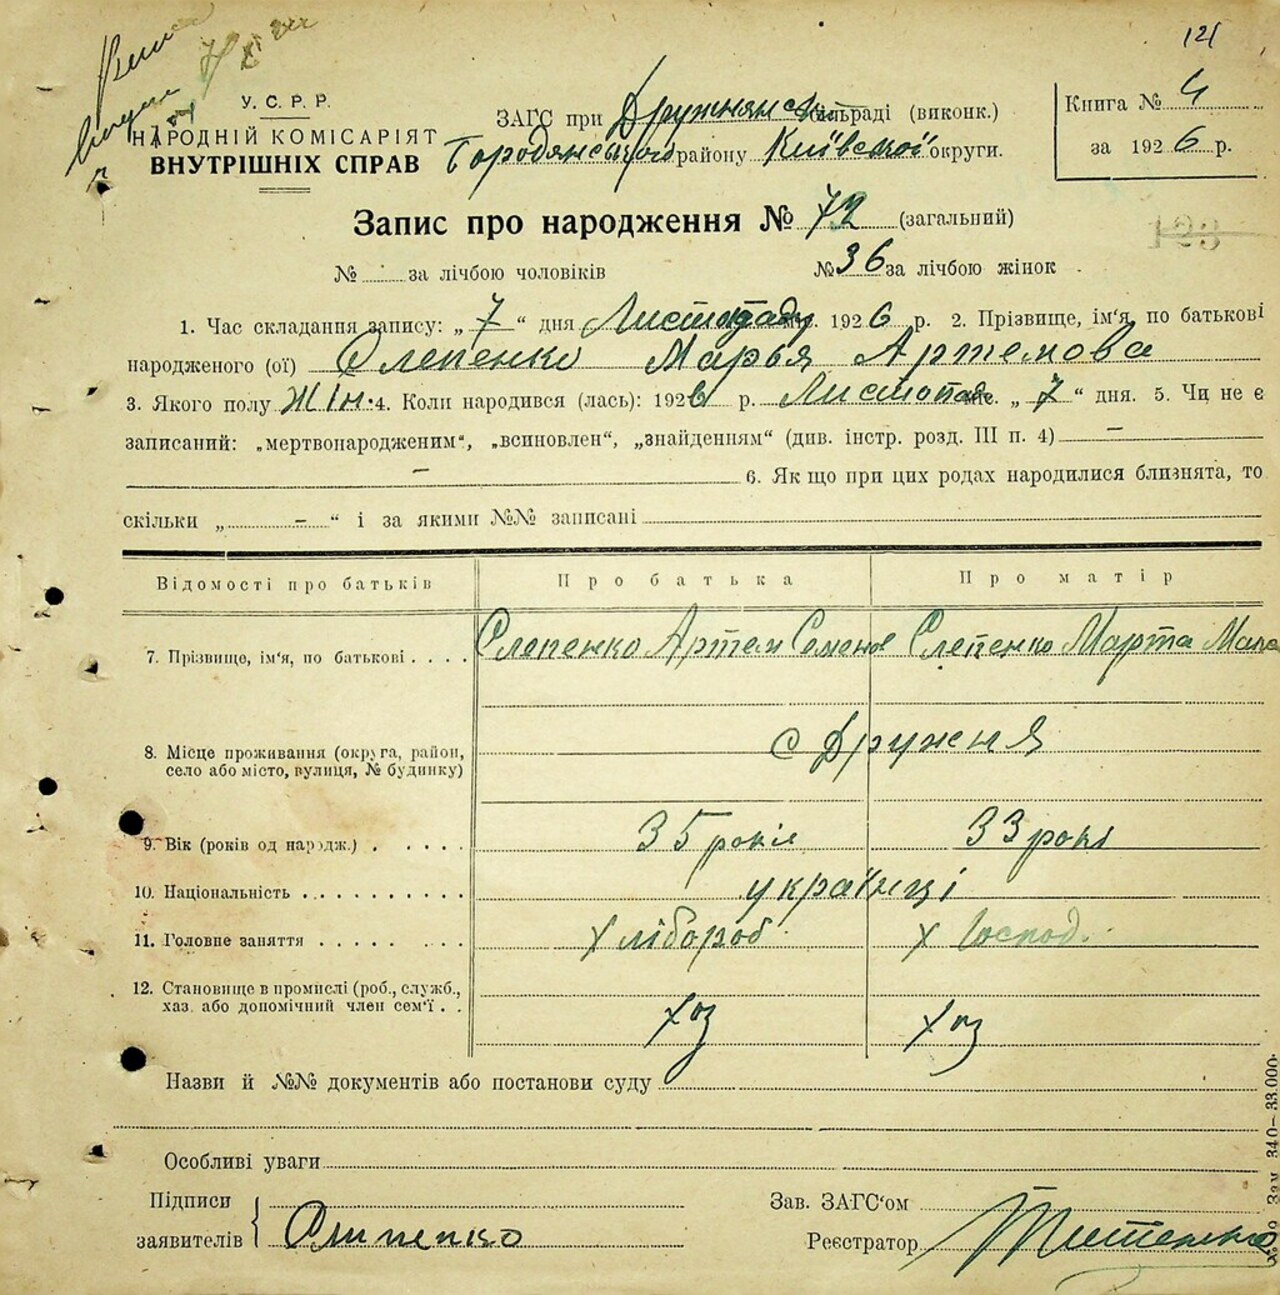 121
У. С. Р. Р.
НАРОДНІЙ КОМІСАРІЯТ
ВНУТРІШНІХ СПРАВ
ЗАГС при Дружнянськ. сільраді (виконк.)
Городянського району Київської округи.
Книга № 4
за 1926 р.
Запис про народження № 72 (загальний)
123
№ за лічбою чоловіків № 36 за лічбою жінок
1. Час складання запису: „ 7 “ дня Листопаду м. 1926 р. 2. Прізвище, ім'я, по батькові
народженого (ої) Слепенко Марья Артемова
3. Якого полу Жін. 4. Коли народився (лась): 1926 р. Листопада „ 7 “ дня. 5. Чи не є
записаний: „мертвонародженим“, „всиновлен“, „знайденням“ (див. інстр. розд. III п. 4) –
– 6. Як що при цих родах народилися близнята, то
скільки „ – “ і за якими №№ записані
Відомості про батьків Про батька Про матір
7. Прізвище, ім'я, по батькові . . . . Слепенко Артем Семенов Слепенко Марта
8. Місце проживання (округа, район,
село або місто, вулиця, № будинку)
с Дружня
9. Вік (років од народж.) . . . . . 35 років 33 рокі
10. Національність . . . . . . . . . . українці
11. Головне заняття . . . . . . . . Хлібороб х господ.
12. Становище в промислі (роб., служб.,
хаз. або допомічний член сем'ї . .
Хоз Хоз
Назви й №№ документів або постанови суду
Особливі уваги
Підписи
заявителів
Слипенко
Зав. ЗАГС'ом
Реєстратор
Зам. 340—33.000.